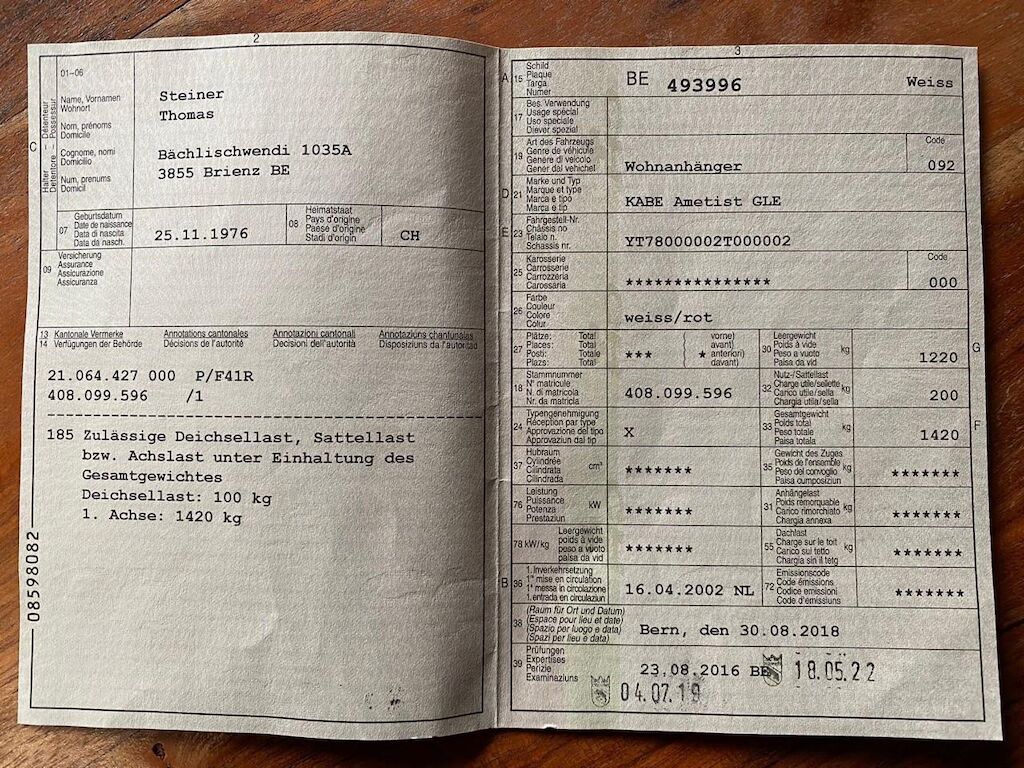 2
C
Halter – Détenteur
Detentore – Possessur
01–06
Name, Vornamen
Wohnort
Nom, prénoms
Domicile
Cognome, nomi
Domicilio
Num, prenums
Domicil
Steiner
Thomas
Bächlischwendi 1035A
3855 Brienz BE
07
Geburtsdatum
Date de naissance
Data di nascita
Data da nasch.
25.11.1976
08
Heimatstaat
Pays d'origine
Paese d'origine
Stadi d'origin
CH
09
Versicherung
Assurance
Assicurazione
Assicuranza
13 Kantonale Vermerke Annotations cantonales Annotazioni cantonali Annotaziuns chantunalas
14 Verfügungen der Behörde Décisions de l'autorité Decisioni dell'autorità Disposiziuns da l'autoritad
21.064.427 000 P/F41R
408.099.596 /1
185 Zulässige Deichsellast, Sattellast
bzw. Achslast unter Einhaltung des
Gesamtgewichtes
Deichsellast: 100 kg
1. Achse: 1420 kg
08598082
3
A 15
Schild
Plaque
Targa
Numer
BE 493996 Weiss
17
Bes. Verwendung
Usage spécial
Uso speciale
Diever spezial
19
Art des Fahrzeugs
Genre de véhicule
Genere di veicolo
Gener dal vehichel
Wohnanhänger
Code
092
D 21
Marke und Typ
Marque et type
Marca e tipo
Marca e tip
KABE Ametist GLE
E 23
Fahrgestell-Nr.
Châssis no
Telaio n.
Schassis nr.
YT78000002T000002
25
Karosserie
Carrosserie
Carrozzeria
Carossaria
***************
Code
000
26
Farbe
Couleur
Colore
Colur
weiss/rot
27
Plätze: Total
Places: Total
Posti: Totale
Plazs: Total
***
vorne)
avant)
( * anteriori)
davant)
30
Leergewicht
Poids à vide
Peso a vuoto
Paisa da vid
kg
1220
G
18
Stammnummer
N° matricule
N. di matricola
Nr. da matricla
408.099.596
32
Nutz-/Sattellast
Charge utile/sellette
Carico utile/sella
Chargia utila/sella
kg
200
24
Typengenehmigung
Réception par type
Approvazione del tipo
Approvaziun dal tip
X
33
Gesamtgewicht
Poids total
Peso totale
Paisa totala
kg
1420
F
37
Hubraum
Cylindrée
Cilindrata
Cilindrada
cm³
*******
35
Gewicht des Zuges
Poids de l'ensemble
Peso del convoglio
Paisa cumposiziun
kg
*******
76
Leistung
Puissance
Potenza
Prestaziun
kW
*******
31
Anhängelast
Poids remorquable
Carico rimorchiato
Chargia annexa
kg
*******
78 kW/kg
Leergewicht
poids à vide
peso a vuoto
paisa da vid
*******
55
Dachlast
Charge sur le toit
Carico sul tetto
Chargia sin il tetg
kg
*******
B 36
1. Inverkehrsetzung
1re mise en circulation
1a messa in circolazione
1. entrada en circulaziun
16.04.2002 NL
72
Emissionscode
Code émissions
Codice emissioni
Code d'emissiuns
*******
38
(Raum für Ort und Datum)
(Espace pour lieu et date)
(Spazio per luogo e data)
(Spazi per lieu e data)
Bern, den 30.08.2018
39
Prüfungen
Expertises
Perizie
Examinaziuns
23.08.2016 BE 18.05.22
04.07.19